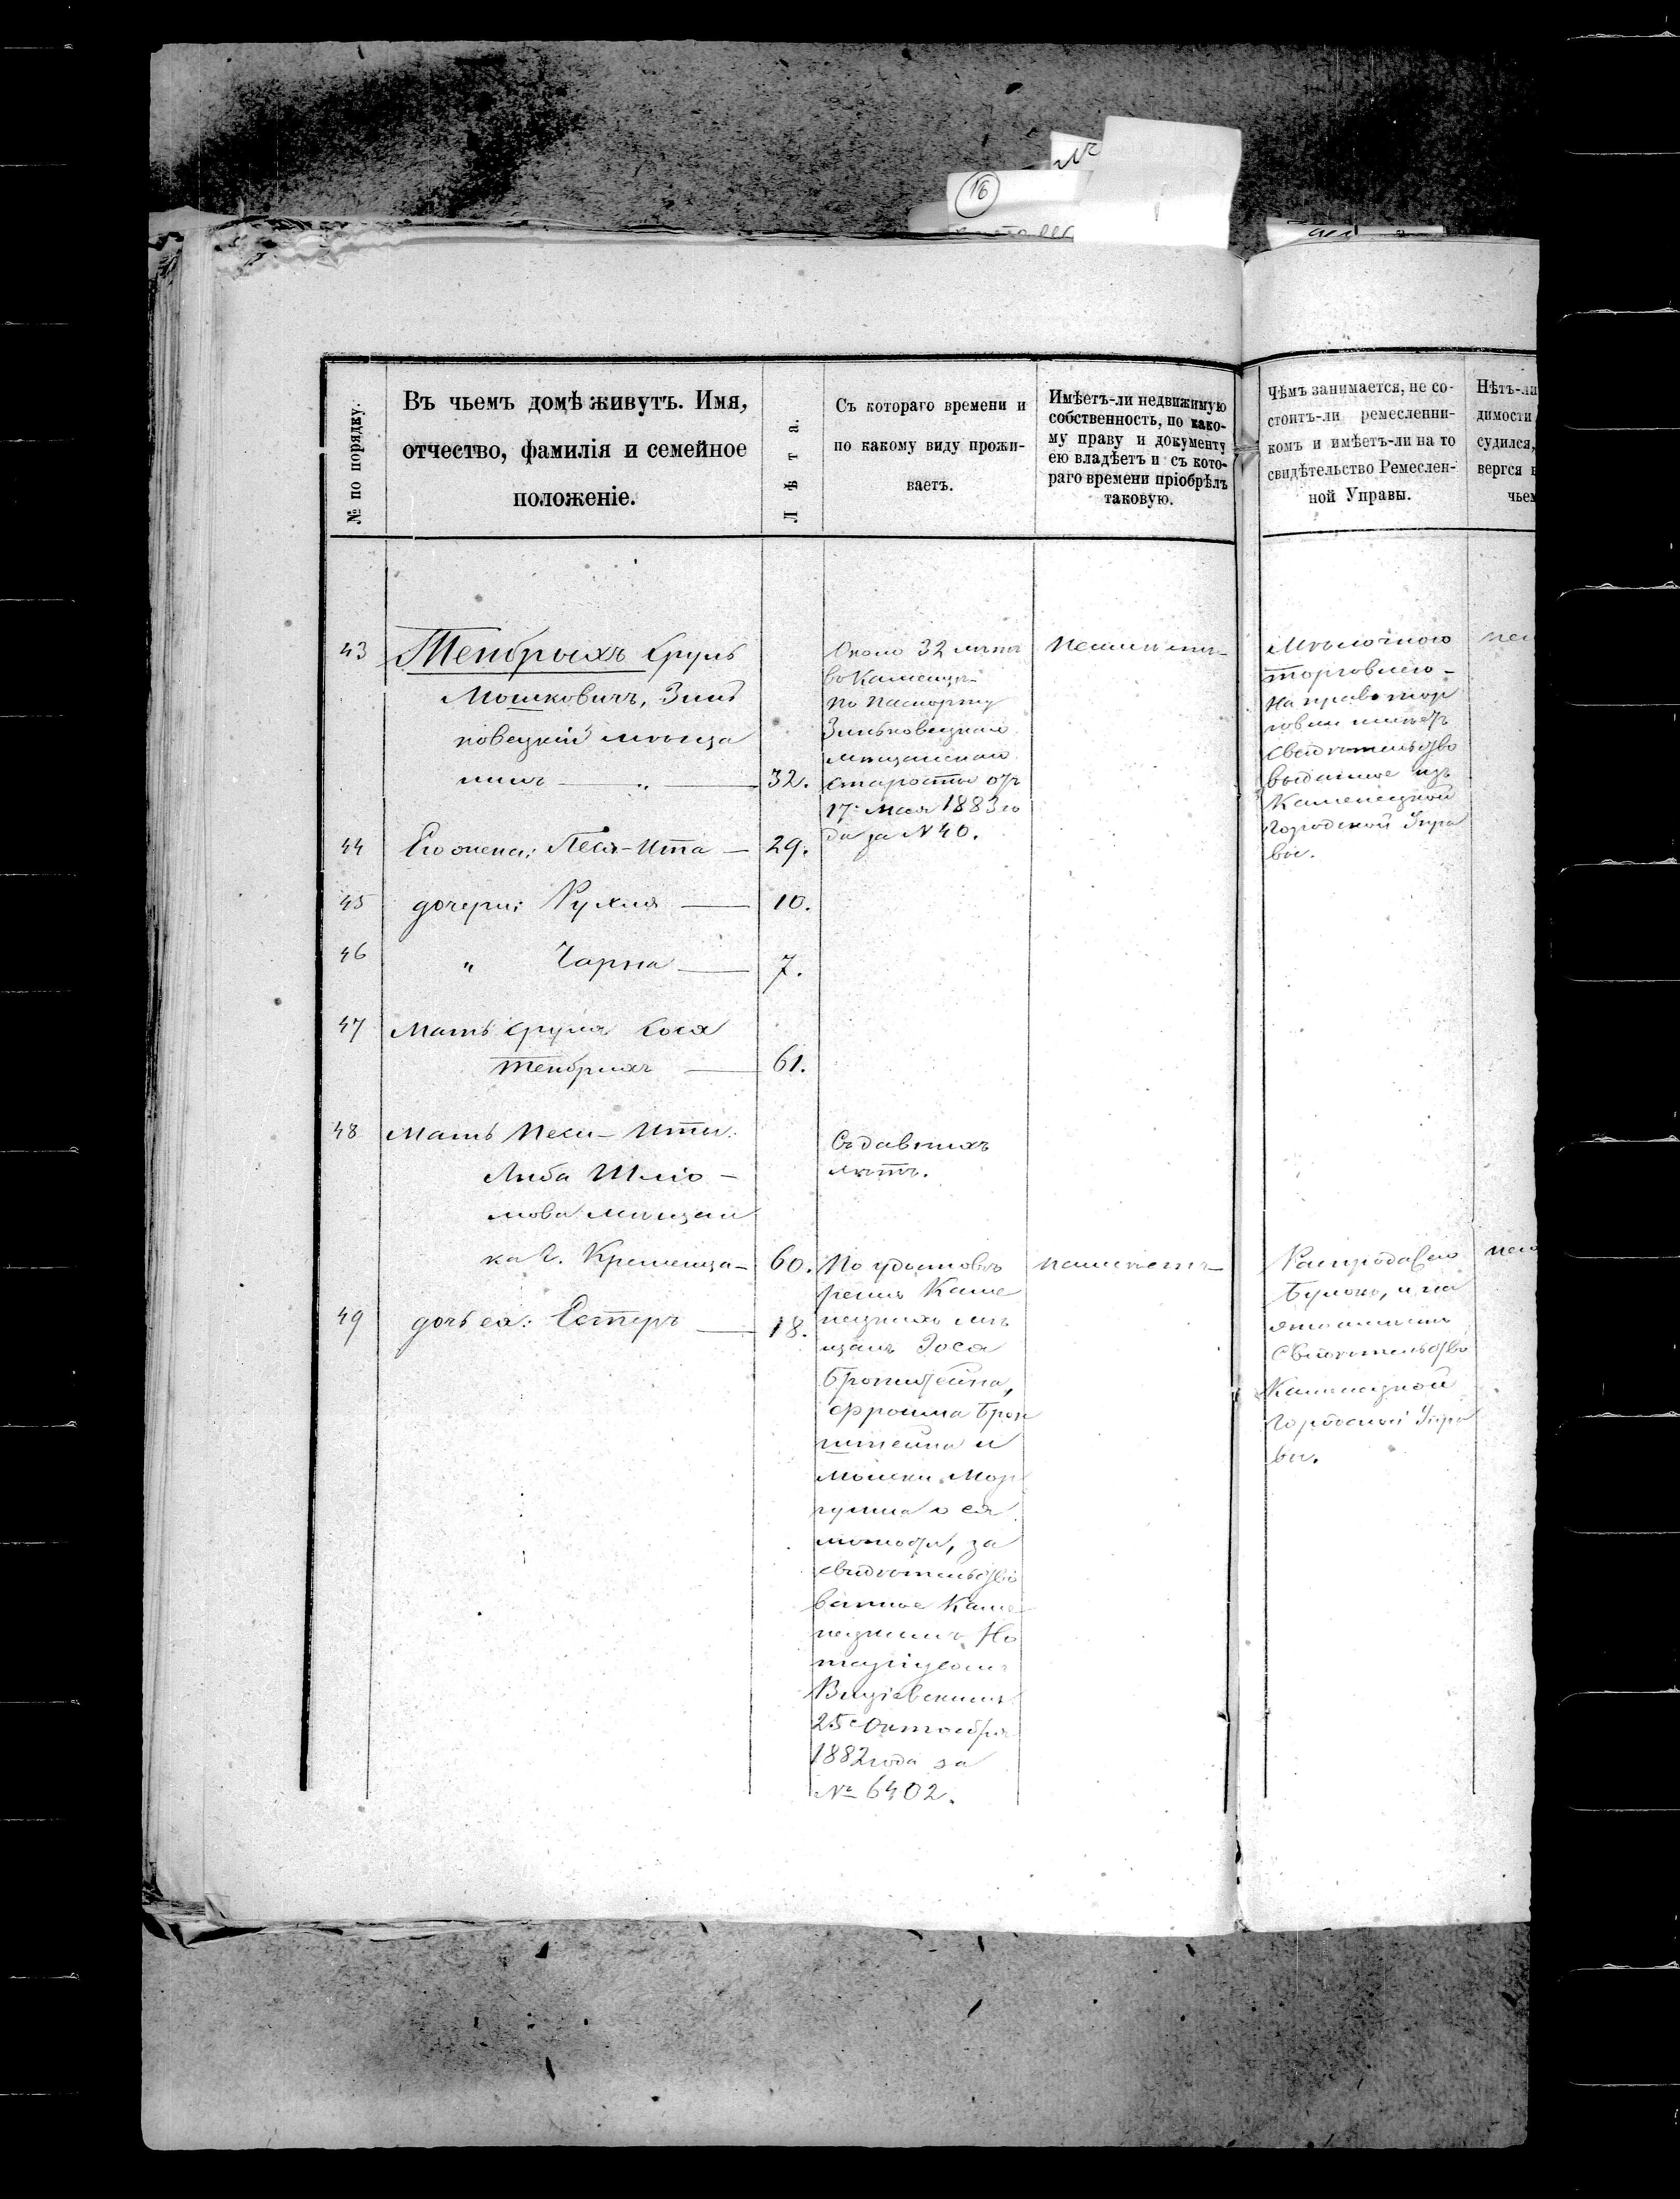 16
№ по порядку.
Въ чьемъ домѣ живутъ. Имя,
отчество, фамилія и семейное
положеніе.
Лѣта.
Съ котораго времени и
по какому виду прожи-
ваетъ.
Имѣетъ-ли недвижимую
собственность, по како-
му праву и документу
ею владѣетъ и съ кото-
раго времени пріобрѣлъ
таковую.
Чѣмъ занимается, не со-
стоитъ-ли ремесленни-
комъ и имѣетъ-ли на то
свидѣтельство Ремеслен-
ной Управы.
Нѣтъ-ли
димости
судился,
вергся
чьем
43
Тенбрыхъ Сруль
Мошковичъ, Зинь
ковецкій мѣща
нинъ — „ — 32.
Около 32 лѣтъ
въ Каменцѣ
по паспорту
Зиньковецкаго
мѣщанскаго
старосты отъ
17 Мая 1883 го
да за № 40.
неимѣетъ
Мѣлочною
торговлею -
на право тор
говли имѣетъ
свидѣтельство
выданное изъ
Каменецкой
Городской Упра
вы.
44 Его жена: Песя-Ита — 29.
45 дочери: Рухля — 10.
46 „ Чарна — 7.
47 Мать Сруля Сося
Тенбрихъ — 61.
48 Мать Песи-Иты:
Либа Шліо-
мова мѣщан
ка г. Кременца — 60.
Съ давнихъ
лѣтъ.
По удостовѣ
ренію Каме
нецкихъ мѣ
щанъ Іося
Бронштейна,
Фроима Брон
штейна и
Мошки Мор
гулиса о ея
личности, за
свидѣтельство
ванное Каме
нецкимъ Но
таріусомъ
25 Октября
1882 года за
№ 6402.
неимѣетъ
Распродажею
булокъ, и на
это имѣетъ
свидѣтельство
Каменецкой
Городской Упра
вы.
49 дочь ея: Естеръ — 18.